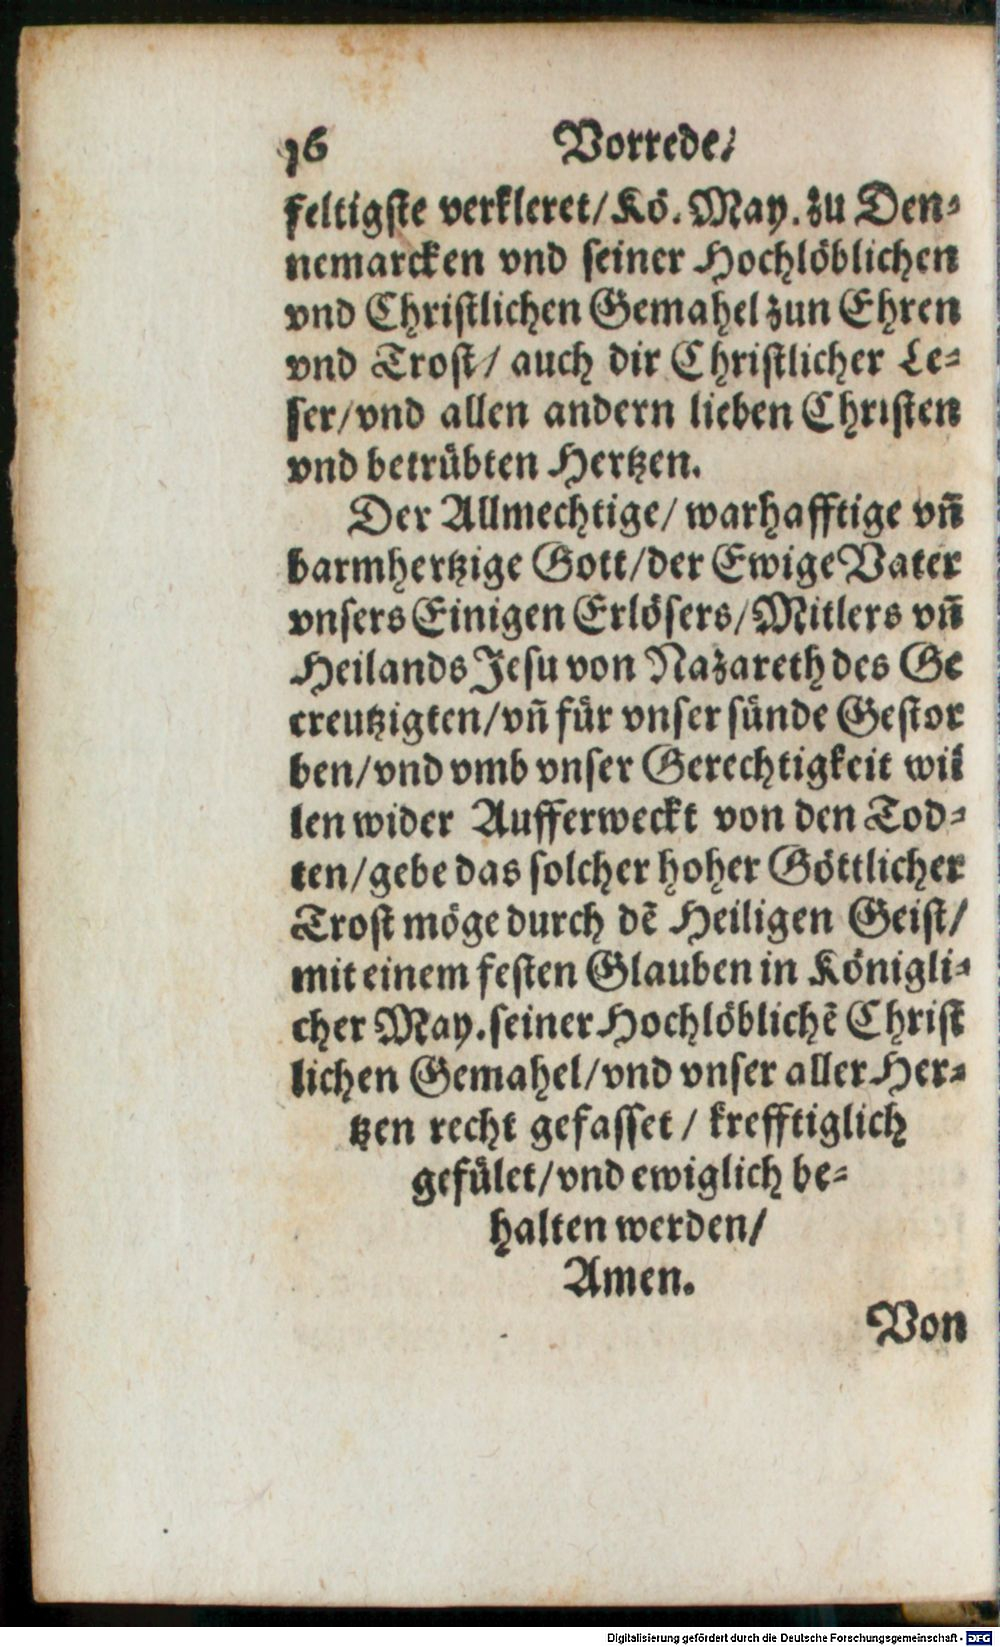 16 Vorrede/
feltigste verkleret/ Kö. May. zu Den⸗
nemarcken vnd seiner Hochlöblichen
vnd Christlichen Gemahel zun Ehren
vnd Trost/ auch dir Christlicher Le⸗
ser/ vnd allen andern lieben Christen
vnd betrübten Hertzen.
Der Allmechtige/ warhafftige vñ
barmhertzige Gott/ der Ewige Vater
vnsers Einigen Erlösers/ Mitlers vñ
Heilands Jesu von Nazareth des Ge
creutzigten/ vñ für vnser sünde Gestor
ben/ vnd vmb vnser Gerechtigkeit wil
len wider Aufferweckt von den Tod⸗
ten/ gebe das solcher hoher Göttlicher
Trost möge durch dē Heiligen Geist/
mit einem festen Glauben in Königli⸗
cher May. seiner Hochlöblichē Christ
lichen Gemahel/ vnd vnser aller Her⸗
tzen recht gefasset/ krefftiglich
gefület/ vnd ewiglich be⸗
halten werden/
Amen.
Von
Digitalisierung gefördert durch die Deutsche Forschungsgemeinschaft - DFG